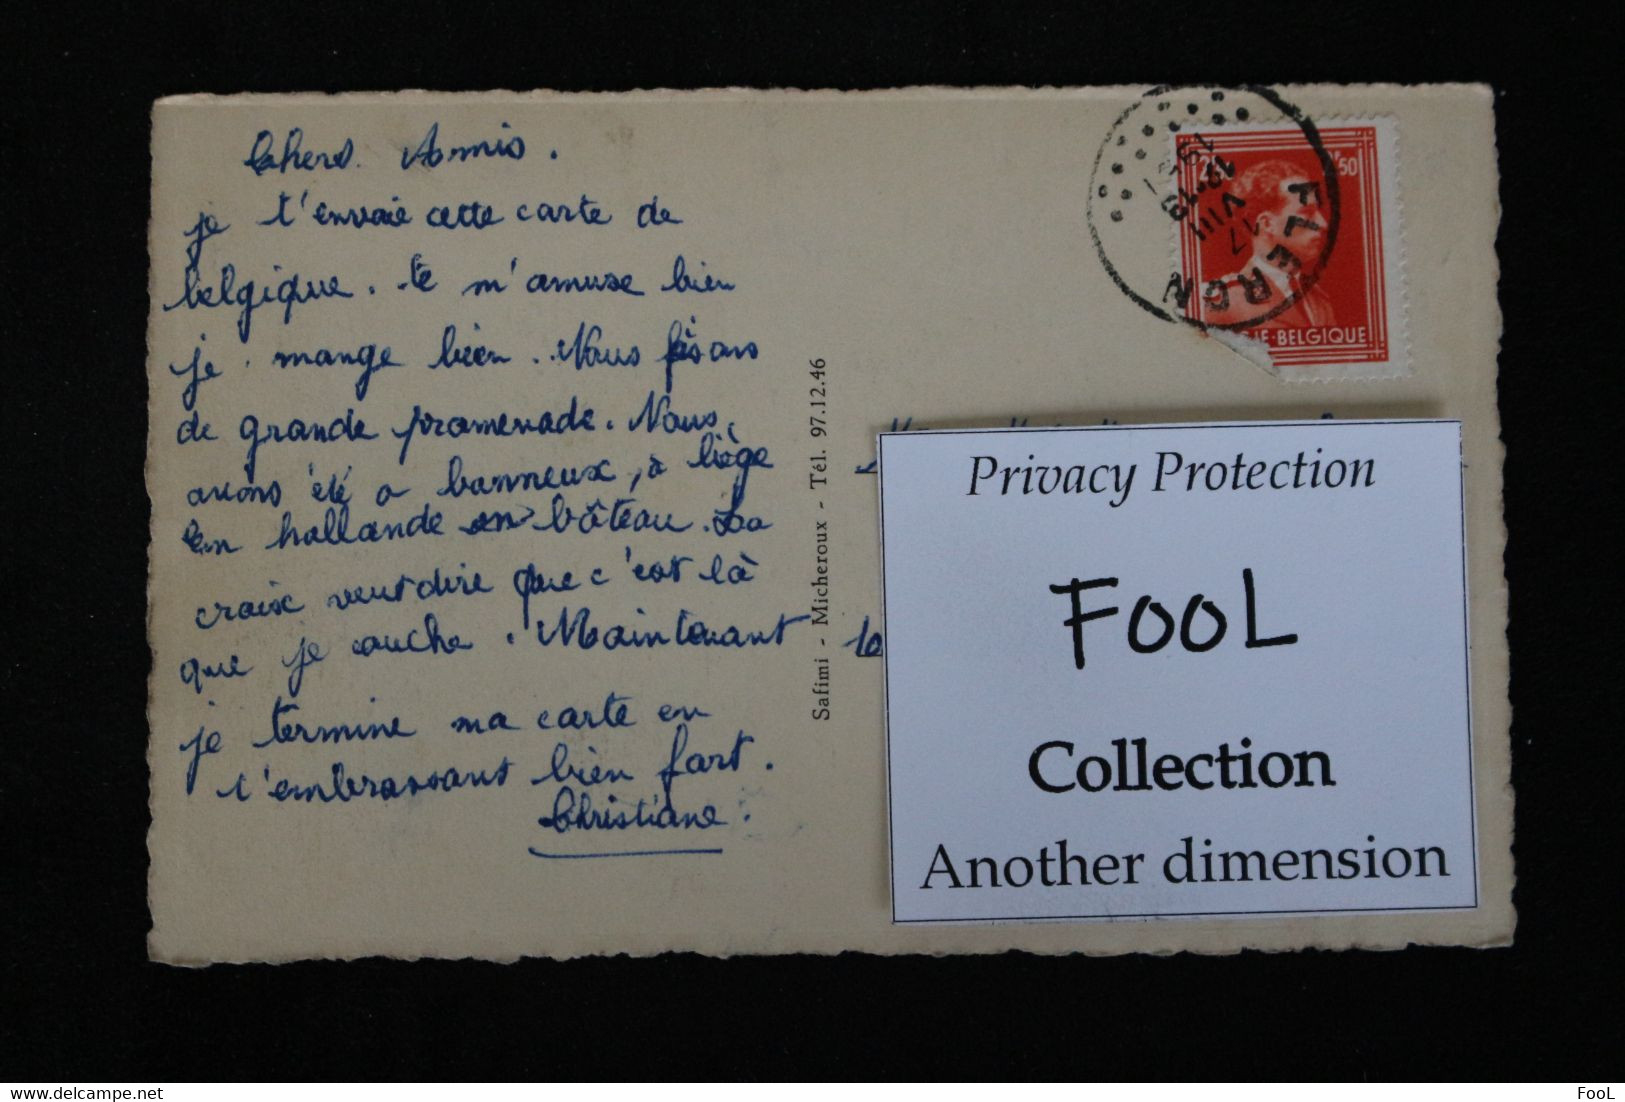 Chers Amis.
je t'envoie cette carte de
belgique. te m'amuse bien
je mange bien. Nous faisons
de grande promenade. Nous
avons été a banneux, à liège
en hollande en bâteau. La
croix veut dire que c'est là
que je couche. Maintenant
je termine ma carte en
t'embrassant bien fort.
Christiane.
Safimi - Micheroux - Tél. 97.12.46
FLERON
17
VIII
BELGIQUE
10
Privacy Protection
FooL
Collection
Another dimension
FooL